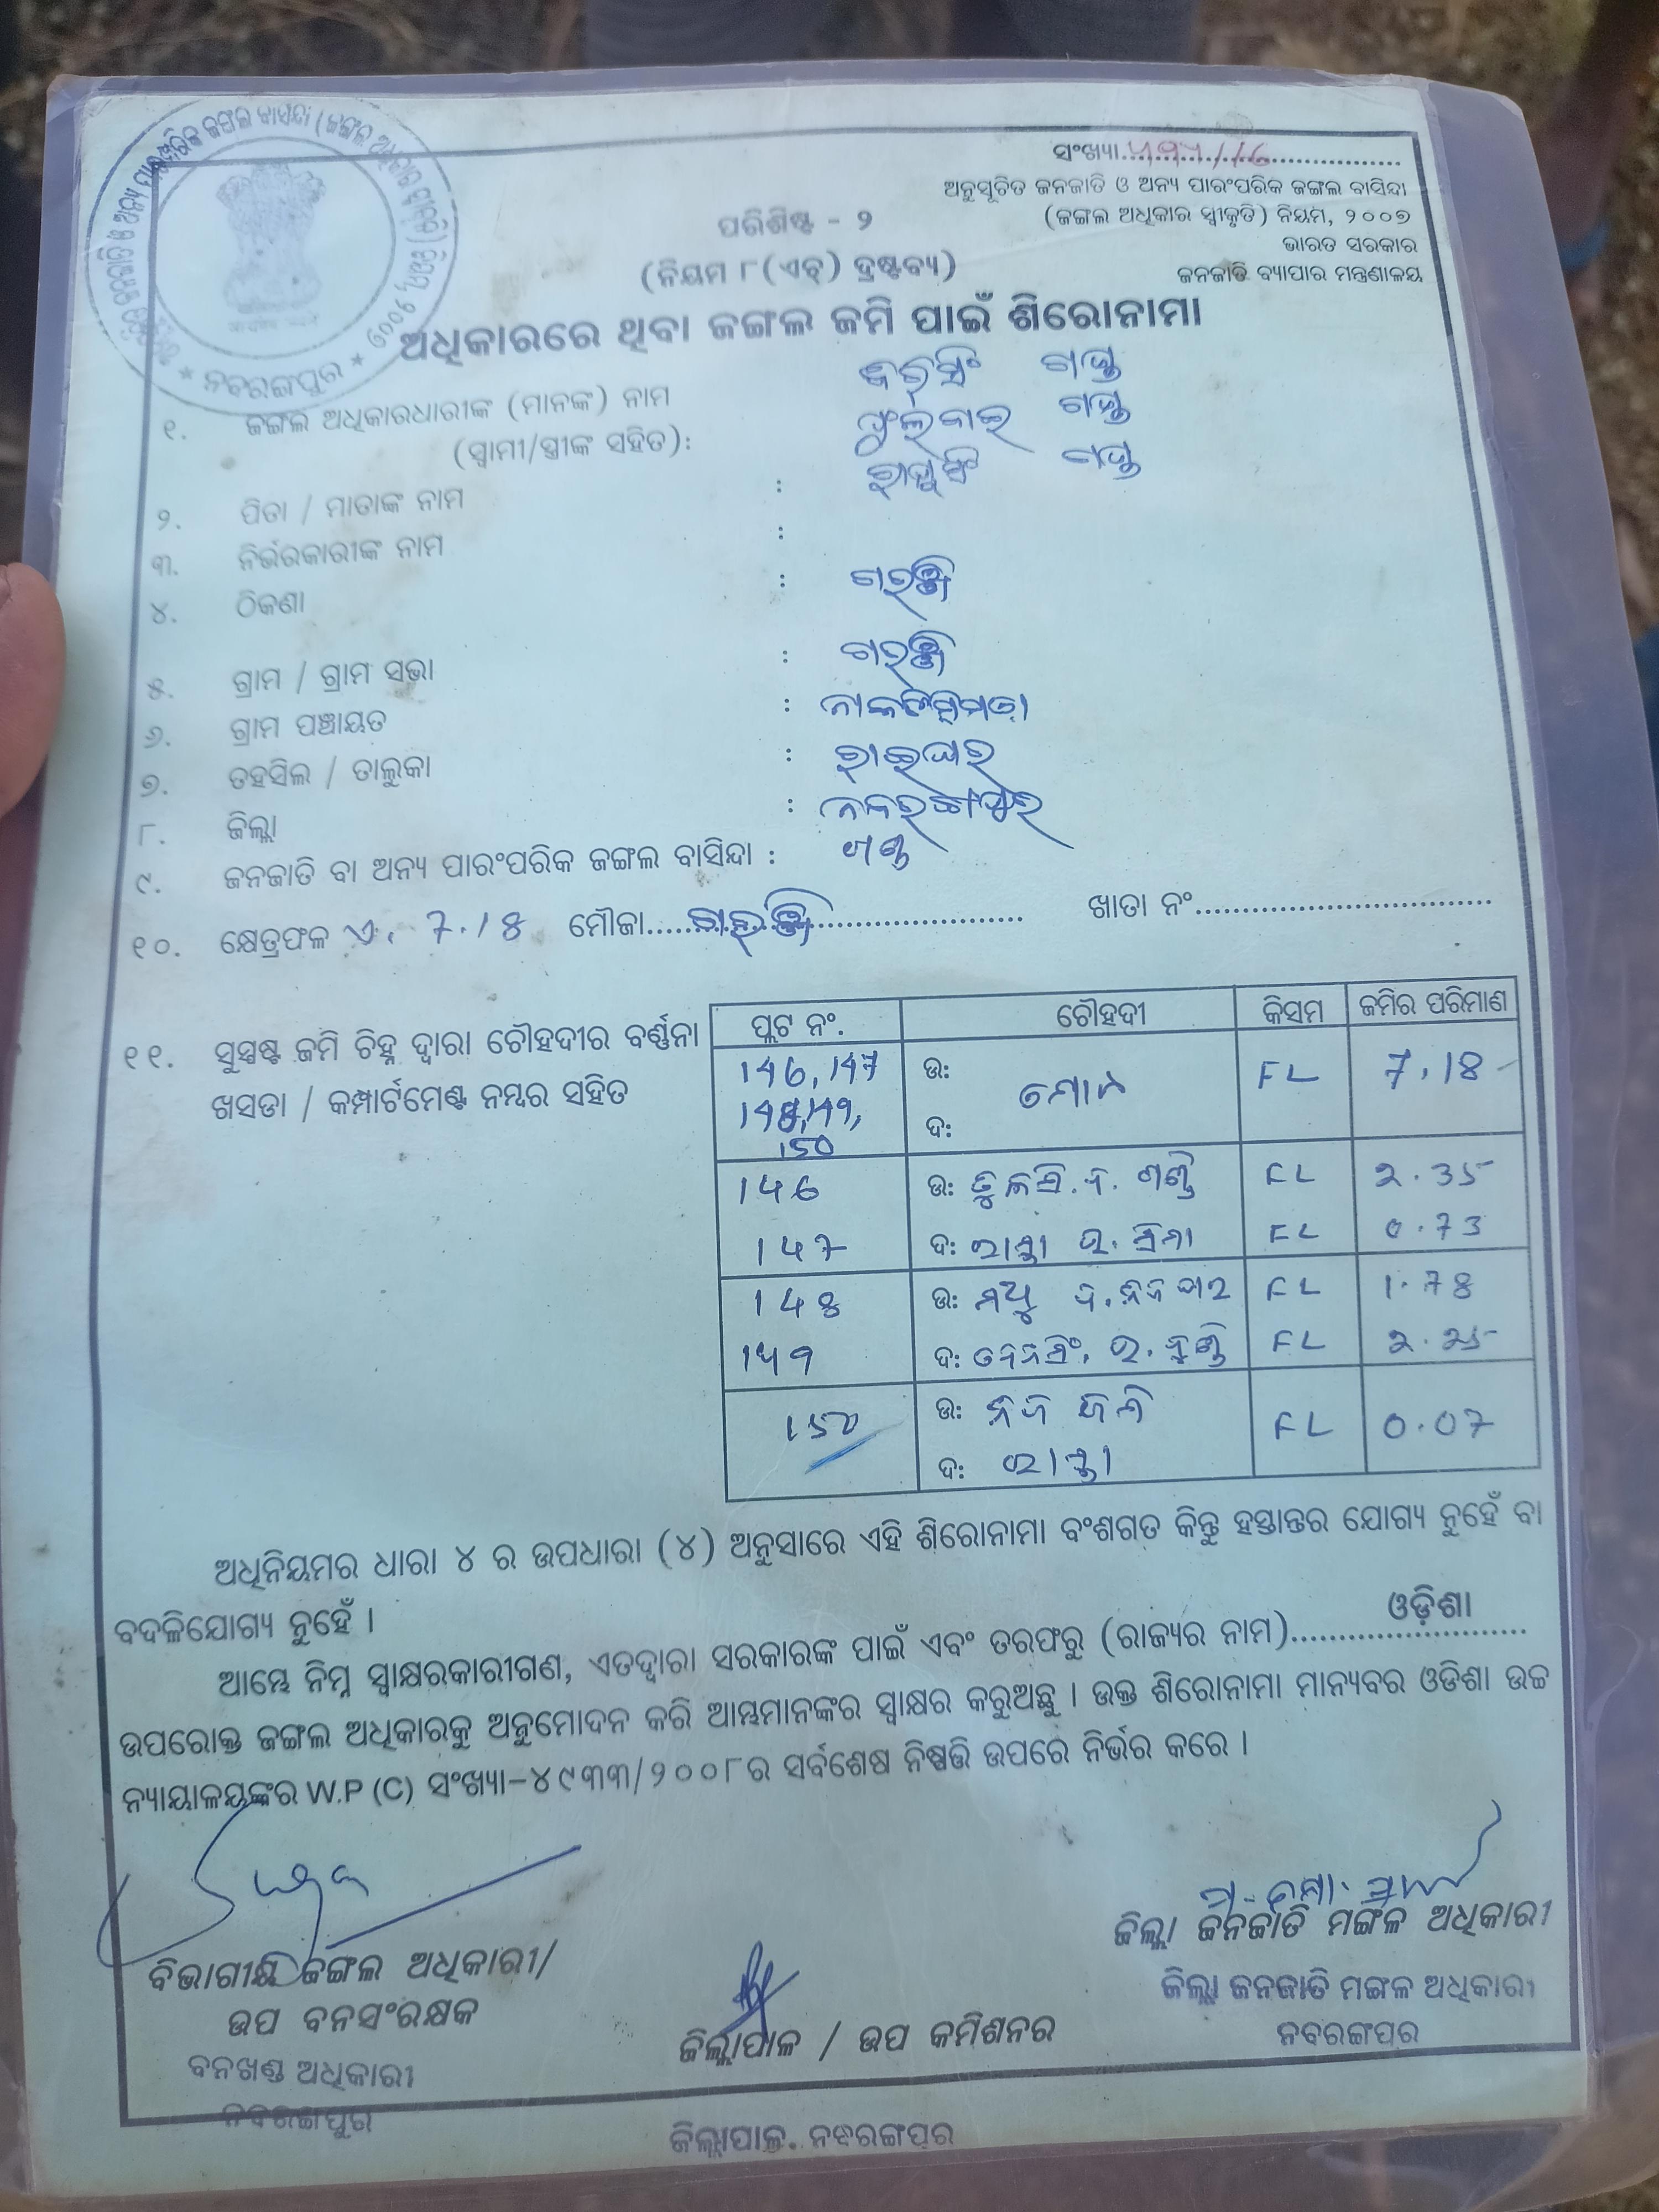 ସଂଖ୍ୟା
ଅନୁସୂଚିତ ଜନଜାତି ଓ ଅନ୍ୟ ପାରଂପରିକ ଜଙ୍ଗଲ ବାସିନ୍ଦା
(ଜଙ୍ଗଲ ଅଧିକାର ସ୍ୱୀକୃତି) ନିୟମ, ୨୦୦୭
ଭାରତ ସରକାର
ଜନଜାତି ବ୍ୟାପାର ମନ୍ତ୍ରଣାଳୟ
ପରିଶିଷ୍ଟ - ୨
(ନିୟମ ୮(ଏଚ୍) ଦ୍ରଷ୍ଟବ୍ୟ)
ଅଧିକାରରେ ଥିବା ଜଙ୍ଗଲ ଜମି ପାଇଁ ଶିରୋନାମା
ନବରଙ୍ଗପୁର
୧. ଜଙ୍ଗଲ ଅଧିକାରଧାରୀଙ୍କ (ମାନଙ୍କ) ନାମ
(ସ୍ୱାମୀ/ସ୍ତ୍ରୀଙ୍କ ସହିତ):
୨. ପିତା / ମାତାଙ୍କ ନାମ :
୩. ନିର୍ଭରକାରୀଙ୍କ ନାମ :
୪. ଠିକଣା :
୫. ଗ୍ରାମ / ଗ୍ରାମ ସଭା :
୬. ଗ୍ରାମ ପଞ୍ଚାୟତ :
୭. ତହସିଲ / ତାଲୁକା : ରାଇଘର
୮. ଜିଲ୍ଲା : ନବରଙ୍ଗପୁର
୯. ଜନଜାତି ବା ଅନ୍ୟ ପାରଂପରିକ ଜଙ୍ଗଲ ବାସିନ୍ଦା : ଗଣ୍ଡ
୧୦. କ୍ଷେତ୍ରଫଳ ଏ. 7.18 ମୌଜା ଖାତା ନଂ
୧୧. ସୁସ୍ପଷ୍ଟ ଜମି ଚିହ୍ନ ଦ୍ୱାରା ଚୌହଦୀର ବର୍ଣ୍ଣନା
ଖସଡା / କମ୍ପାର୍ଟମେଣ୍ଟ ନମ୍ବର ସହିତ
ପ୍ଲଟ ନଂ. ଚୌହଦୀ କିସମ ଜମିର ପରିମାଣ
146, 147 ଉ: FL 7.18
148, 149, ଦ:
150
146 ଉ: FL 2.35
147 ଦ: ରାସ୍ତା FL 0.73
148 ଉ: FL 1.78
149 ଦ: FL 2.25
150 ଉ: ନିଜ ଜମି FL 0.07
ଦ: ରାସ୍ତା
ଅଧିନିୟମର ଧାରା ୪ ର ଉପଧାରା (୪) ଅନୁସାରେ ଏହି ଶିରୋନାମା ବଂଶଗତ କିନ୍ତୁ ହସ୍ତାନ୍ତର ଯୋଗ୍ୟ ନୁହେଁ ବା
ବଦଳିଯୋଗ୍ୟ ନୁହେଁ ।
ଆମ୍ଭେ ନିମ୍ନ ସ୍ୱାକ୍ଷରକାରୀଗଣ, ଏତଦ୍ୱାରା ସରକାରଙ୍କ ପାଇଁ ଏବଂ ତରଫରୁ (ରାଜ୍ୟର ନାମ) ଓଡ଼ିଶା
ଉପରୋକ୍ତ ଜଙ୍ଗଲ ଅଧିକାରକୁ ଅନୁମୋଦନ କରି ଆମ୍ଭମାନଙ୍କର ସ୍ୱାକ୍ଷର କରୁଅଛୁ । ଉକ୍ତ ଶିରୋନାମା ମାନ୍ୟବର ଓଡିଶା ଉଚ୍ଚ
ନ୍ୟାୟାଳୟଙ୍କର W.P (C) ସଂଖ୍ୟା-୪୯୩୩/୨୦୦୮ର ସର୍ବଶେଷ ନିଷ୍ପତ୍ତି ଉପରେ ନିର୍ଭର କରେ ।
ବିଭାଗୀୟ ଜଙ୍ଗଲ ଅଧିକାରୀ/
ଉପ ବନସଂରକ୍ଷକ
ବନଖଣ୍ଡ ଅଧିକାରୀ
ନବରଙ୍ଗପୁର
ଜିଲ୍ଲାପାଳ / ଉପ କମିଶନର
ଜିଲ୍ଲାପାଳ, ନବରଙ୍ଗପୁର
ଜିଲ୍ଲା ଜନଜାତି ମଙ୍ଗଳ ଅଧିକାରୀ
ଜିଲ୍ଲା ଜନଜାତି ମଙ୍ଗଳ ଅଧିକାରୀ
ନବରଙ୍ଗପୁର